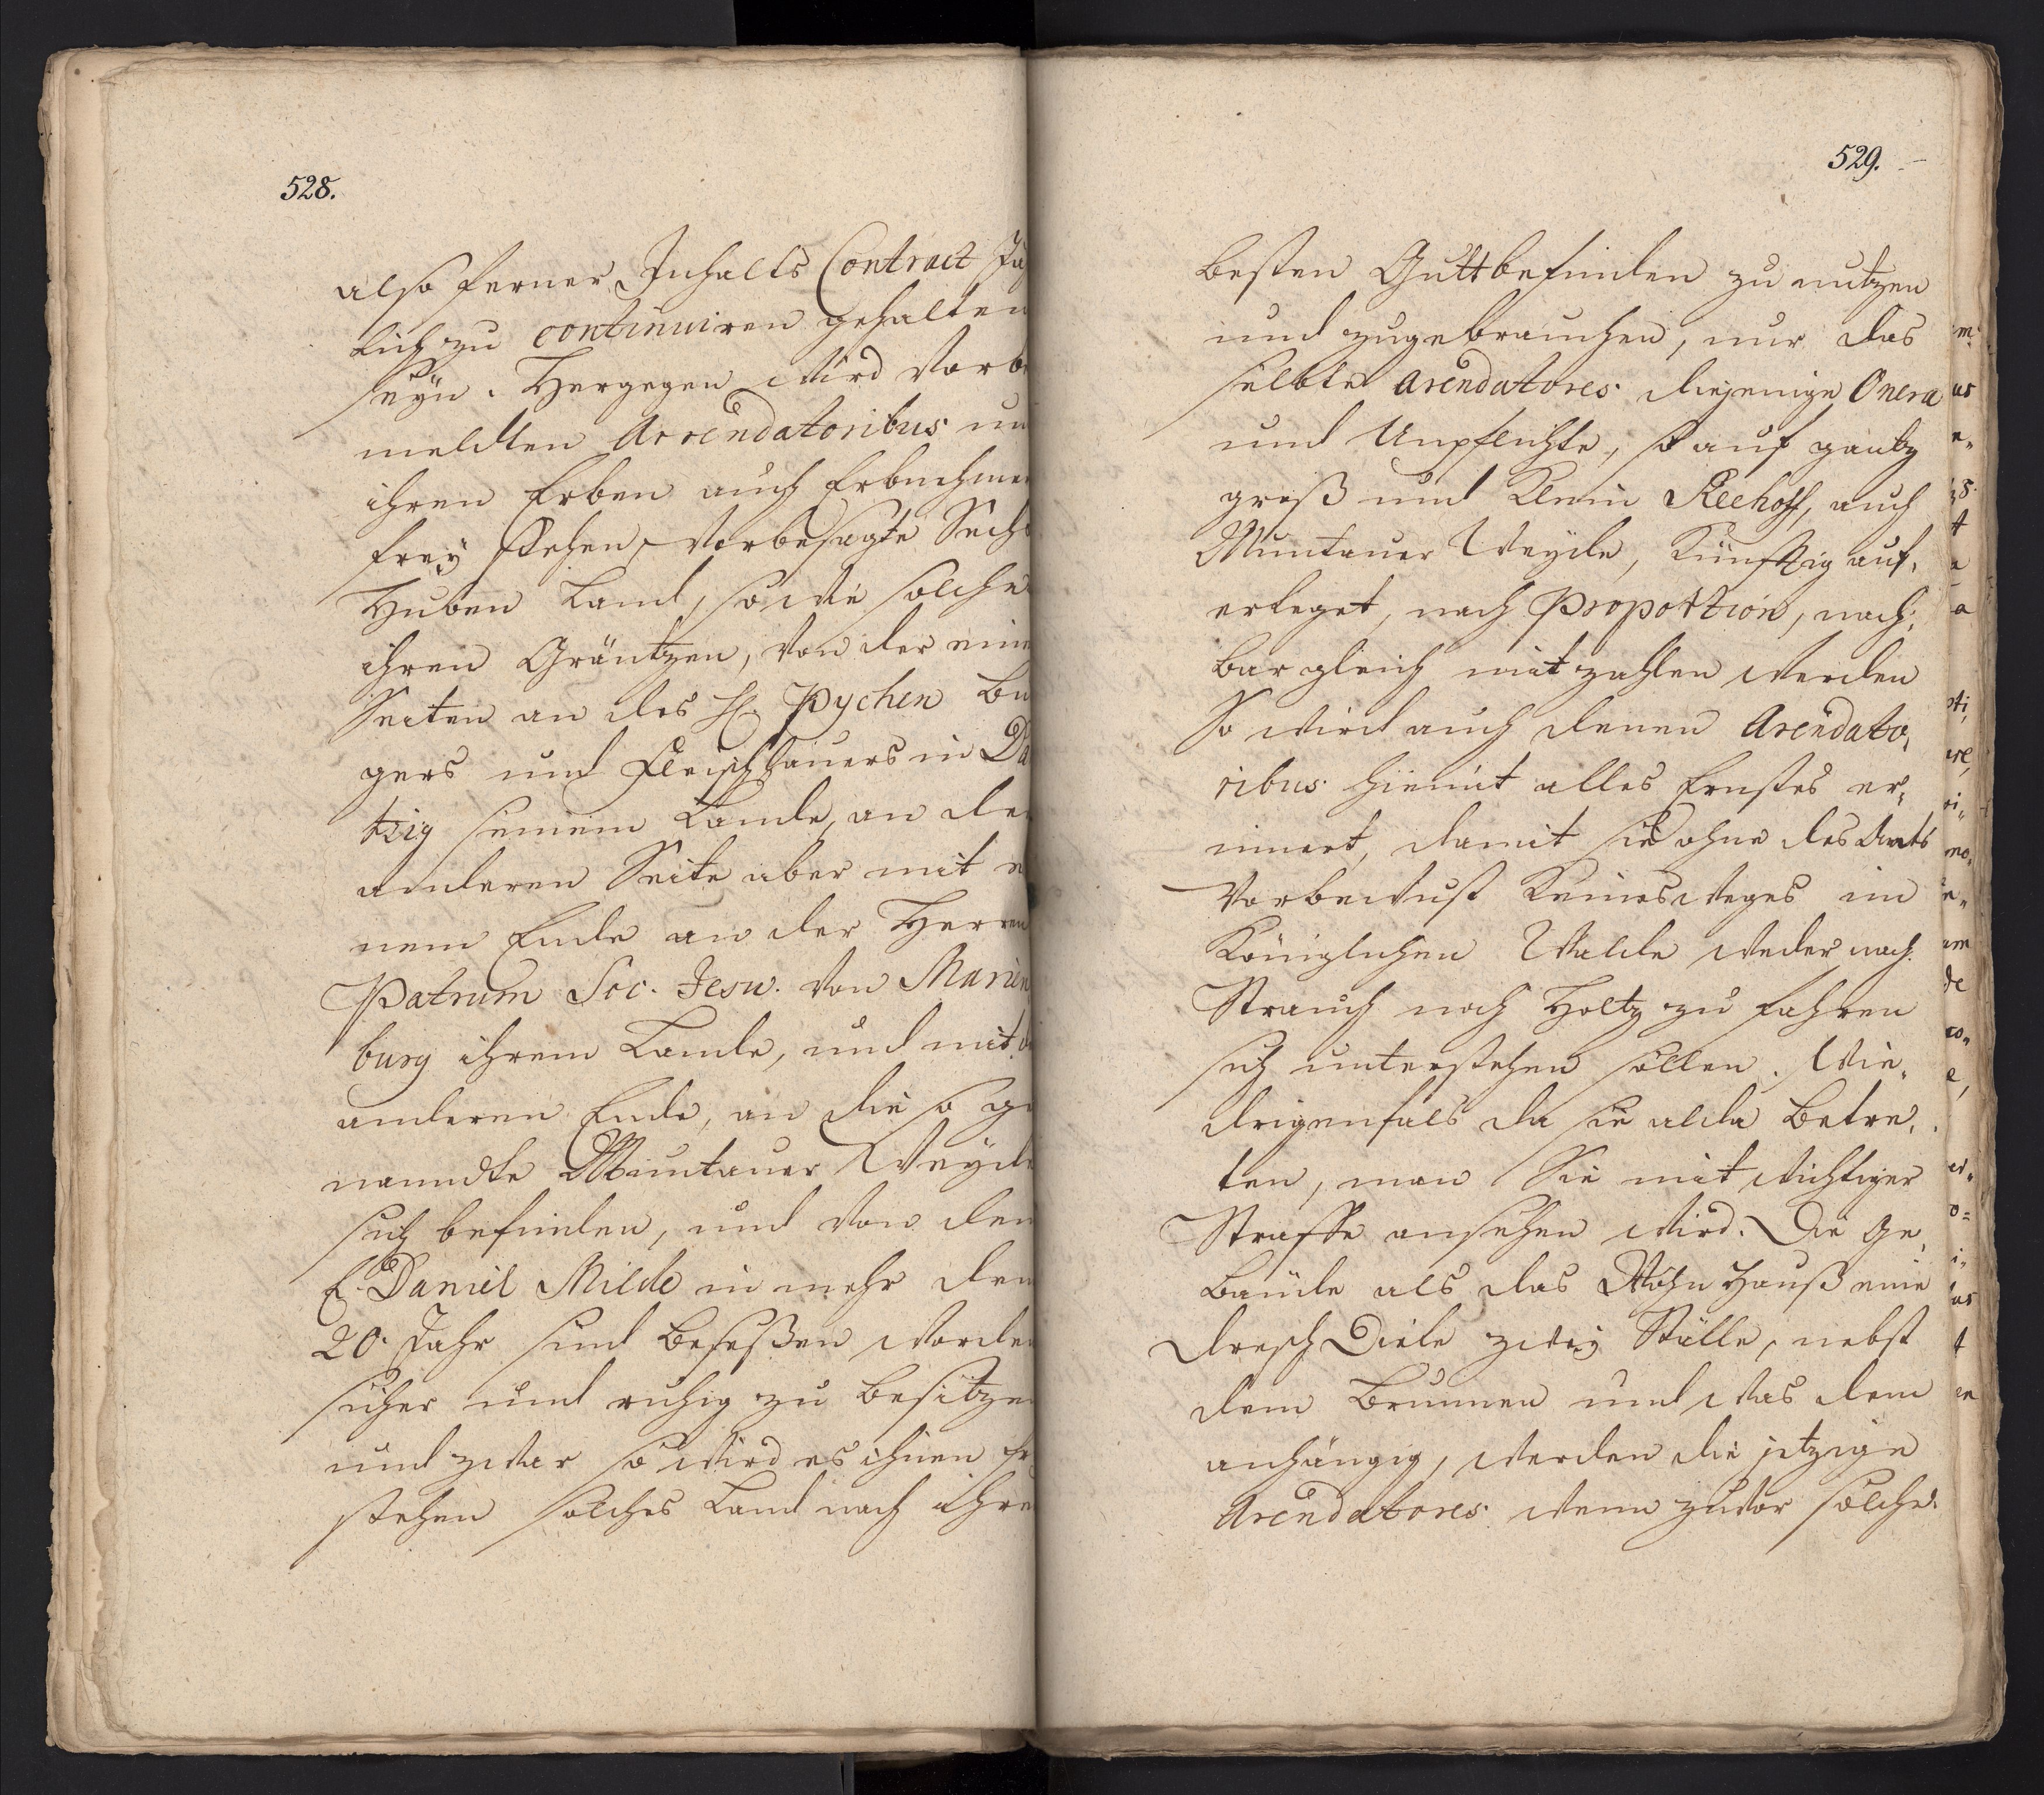 528.
also ferner Inhalts Contract Jä
lich zu continuiren gehalten
seyn. Hergegen wird Vorbe
meldten Arrendatoribus un
ihren Erben auch Erbnehmer
frey stehen, Vorbesagte Sechs
Huben Land, so wie solche
ihren Gräntzen, Von der eine
Seiten an des H. Pychen bu
gers und Fleischhauers in Da
tzig seinem Lande, an der
anderen Seite aber mit e
nem Ende an der Herren
Patrum Soc. Jesu. Von Marien
burg ihrem Lande, und mit
anderen Ende, an die so ge
nanndte Muntauer Weyde
sich befinden, und Von den
E. Daniel Milde in mehr den
20. Jahr sind besessen worden
sicher und ruhig zu besitzen
und zwar so wird es ihnen fr
stehen solches Land nach ihre
529.
besten Guttbefinden zu nutzen
und zugebrauchen, nur das
selbte Arendatores diejenige Onera
und Unpflichte, so auf gantz
groß und Klein Kleehoff, auch
Muntauer Weyde, Künfftig auf,
erleget, nach Proportion, nach,
bar gleich mit zahlen werden
So wird auch denen Arendato,
ribus hiemit alles Ernstes er,
innert, damit sie ohne des Amts
Vorbewust Keinesweges im
Königlichen Walde weder nach
Strauch noch Holtz zu fahren
sich unterstehen sollen. Wie,
drigenfals da sie alda betre,
ten, man Sie mit wichtiger
Straffe ansehen wird. Die Ge,
bäude als das Wohn Hauß eine
dresch Diele zwey Ställe, nebst
dem Brunnen und was dem
anhängig, werden die jtzige
Arendatores wenn zuvor solche